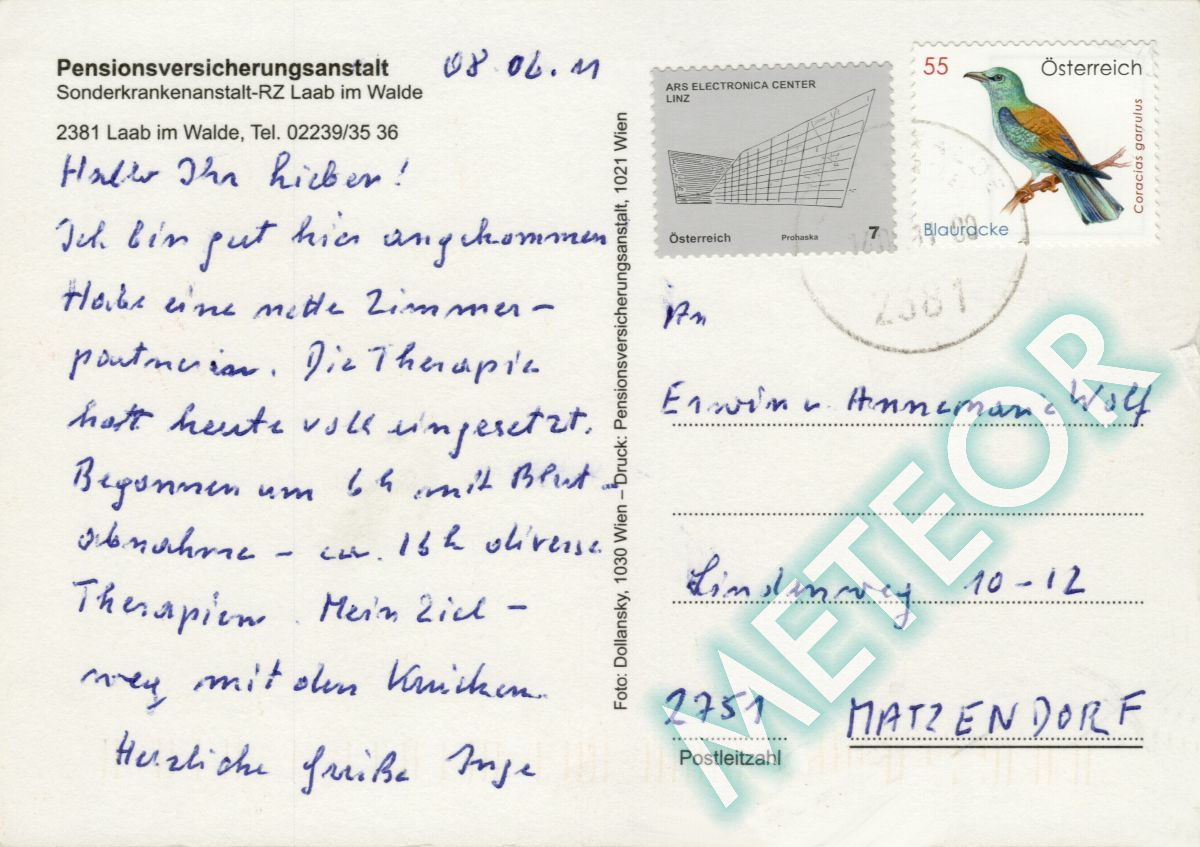 Pensionsversicherungsanstalt
Sonderkrankenanstalt-RZ Laab im Walde
2381 Laab im Walde, Tel. 02239/35 36
08.06.11
Hallo Ihr Lieben!
Ich bin gut hier angekommen
Habe eine nette Zimmer-
partnerin. Die Therapie
hatt heute voll eingesetzt.
Begonnen um 6h mit Blut-
abnahme - ca. 16h diverse
Therapien. Mein Ziel -
weg mit den Krücken.
Herzliche Grüße Inge
Foto: Dollansky, 1030 Wien – Druck: Pensionsversicherungsanstalt, 1021 Wien
ARS ELECTRONICA CENTER
LINZ
Österreich Prohaska 7
55 Österreich
Coracias garrulus
Blauracke
2381
An
Erwin u. Annemarie Wolf
Lindenweg 10-12
2751 MATZENDORF
Postleitzahl
METEOR